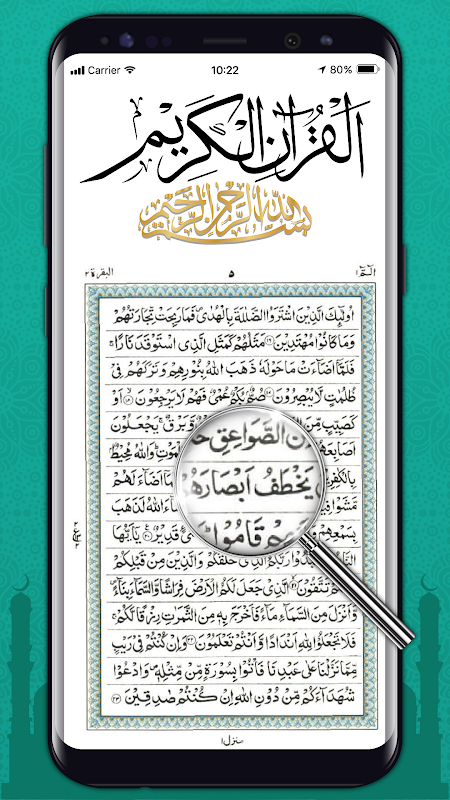 Carrier 10:22 80%
القرآن الكريم
بسم الله الرحمن الرحيم
الٓمّٓ ١ ٥ البقرة ٢
اُولٰٓئِكَ الَّذِيْنَ اشْتَرَوُا الضَّلٰلَةَ بِالْهُدٰى فَمَا رَبِحَتْ تِّجَارَتُهُمْ
وَمَا كَانُوْا مُهْتَدِيْنَ ﴿١٦﴾ مَثَلُهُمْ كَمَثَلِ الَّذِى اسْتَوْقَدَ نَارًا
فَلَمَّآ اَضَآءَتْ مَا حَوْلَهٗ ذَهَبَ اللّٰهُ بِنُوْرِهِمْ وَتَرَكَهُمْ فِىْ
ظُلُمٰتٍ لَّا يُبْصِرُوْنَ ﴿١٧﴾ صُمٌّۢ بُكْمٌ عُمْىٌ فَهُمْ لَا يَرْجِعُوْنَ ﴿١٨﴾ اَوْ
كَصَيِّبٍ مِّنَ وَّبَرْقٌ يَجْعَلُوْنَ
اَصَابِعَهُمْ وَاللّٰهُ مُحِيْطٌۢ
الصَّوَاعِقِ
بِالْكٰفِرِيْنَ اَضَآءَ لَهُمْ
يَخْطَفُ اَبْصَارَهُمْ
مَّشَوْا اللّٰهُ لَذَهَبَ
قَامُوْا
بِسَمْعِهِمْ قَدِيْرٌ ﴿٢٠﴾ يٰٓاَيُّهَا
النَّاسُ رَبَّكُمُ الَّذِىْ خَلَقَكُمْ وَالَّذِيْنَ مِنْ قَبْلِكُمْ
لَعَلَّكُمْ تَتَّقُوْنَ ﴿٢١﴾ الَّذِىْ جَعَلَ لَكُمُ الْاَرْضَ فِرَاشًا وَّالسَّمَآءَ بِنَآءً
وَّاَنْزَلَ مِنَ السَّمَآءِ مَآءً فَاَخْرَجَ بِهٖ مِنَ الثَّمَرٰتِ رِزْقًا لَّكُمْ
فَلَا تَجْعَلُوْا لِلّٰهِ اَنْدَادًا وَّاَنْتُمْ تَعْلَمُوْنَ ﴿٢٢﴾ وَاِنْ كُنْتُمْ فِىْ رَيْبٍ
مِّمَّا نَزَّلْنَا عَلٰى عَبْدِنَا فَاْتُوْا بِسُوْرَةٍ مِّنْ مِّثْلِهٖ وَادْعُوْا
شُهَدَآءَكُمْ مِّنْ دُوْنِ اللّٰهِ اِنْ كُنْتُمْ صٰدِقِيْنَ ﴿٢٣﴾
منزل ١